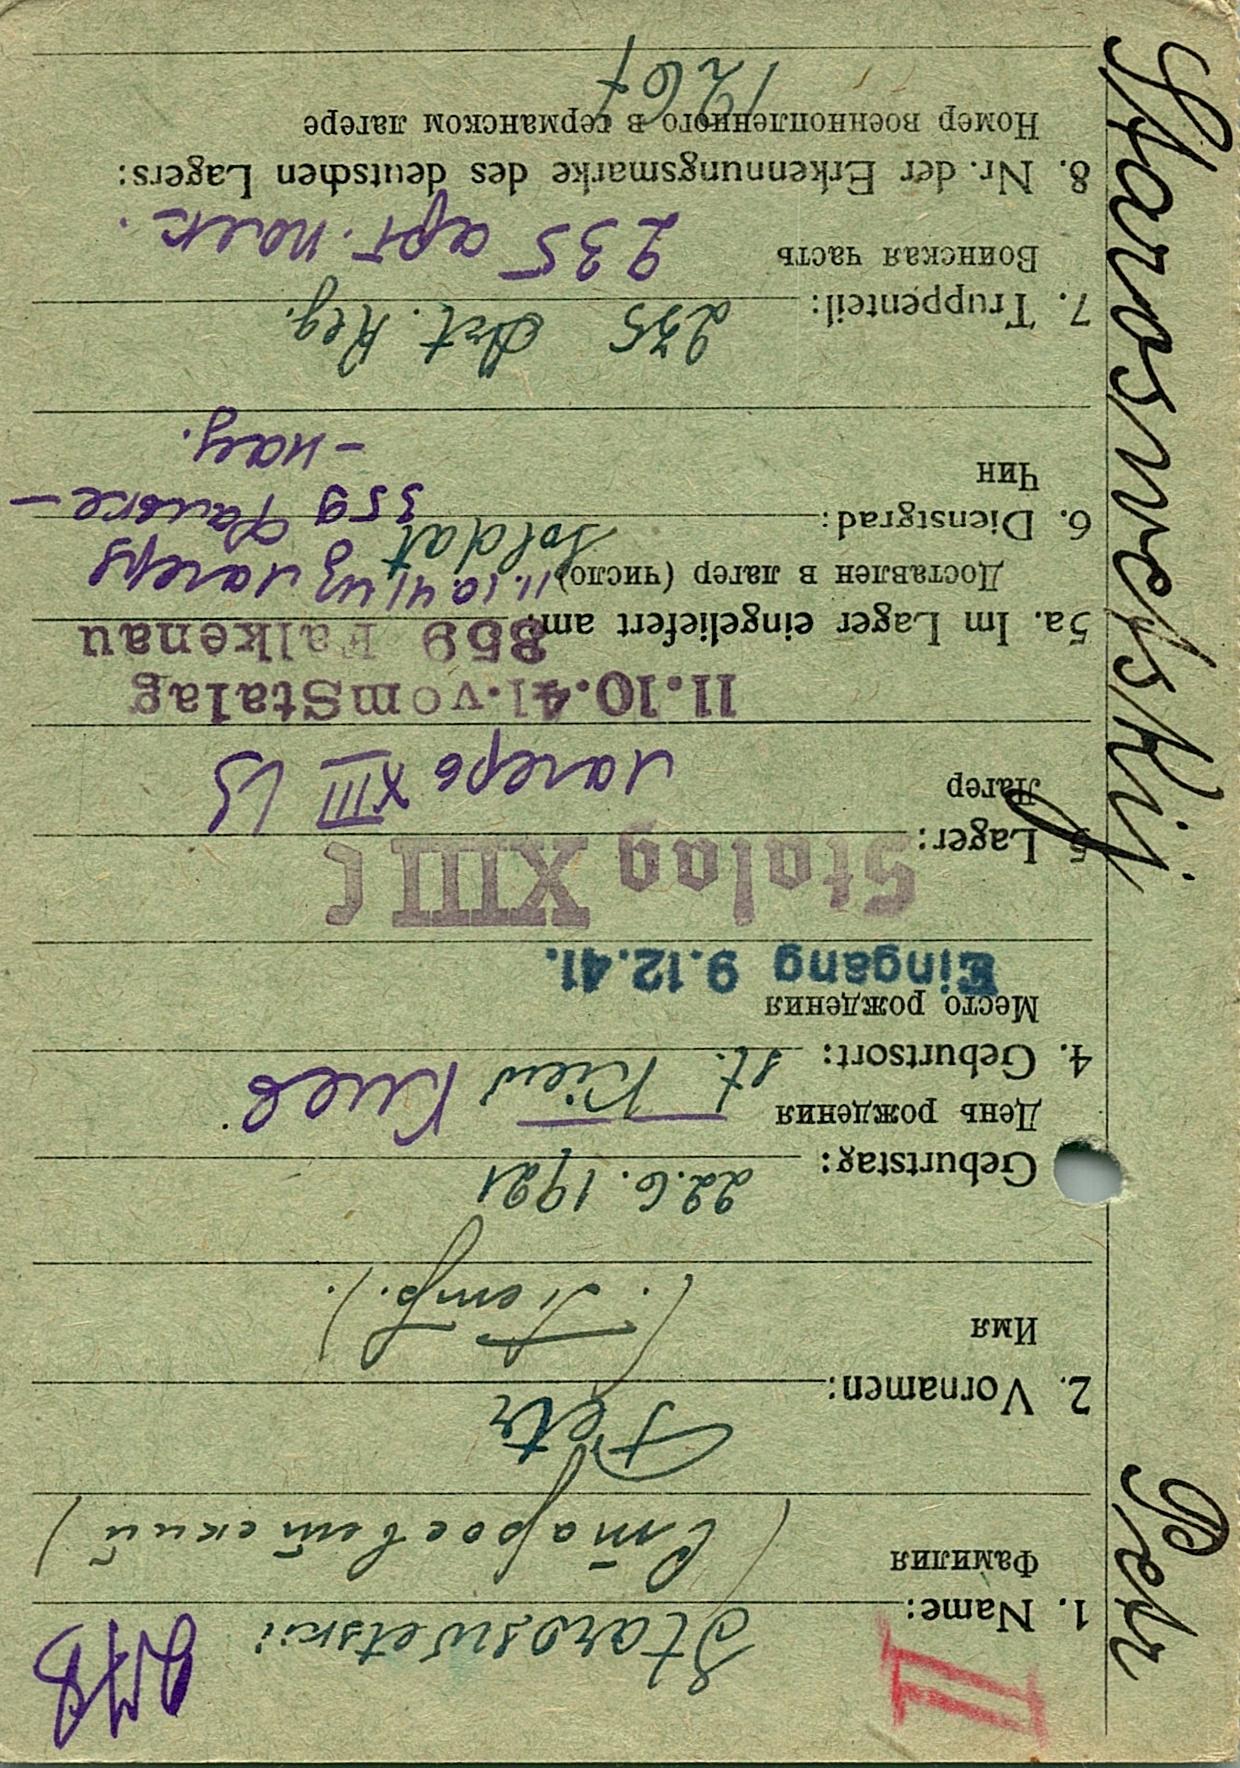 II
248
1. Name: Staroswetskii
Фамилия (Старосветский)
2. Vornamen: Petr
Имя (Петр.)
Geburtstag: 22.6.1921
День рождения
4. Geburtsort: st. Kiew Киев
Место рождения
Eingang 9.12.41.
Stalag XIII C
5 Lager:
Лагер лагерь XIII C
11.10.41. vom Stalag
359 Falkenau
5a. Im Lager eingeliefert am:
Доставлен в лагер (число) 11.10.41 из лагеря
359 Фалькенау.
6. Dienstgrad: Soldat
Чин
7. Truppenteil: 235 Art. Reg.
Воинская часть 235 арт. полк.
8. Nr. der Erkennungsmarke des deutschen Lagers:
Номер военнопленного в германском лагере
1267
Staroswetskij Petr